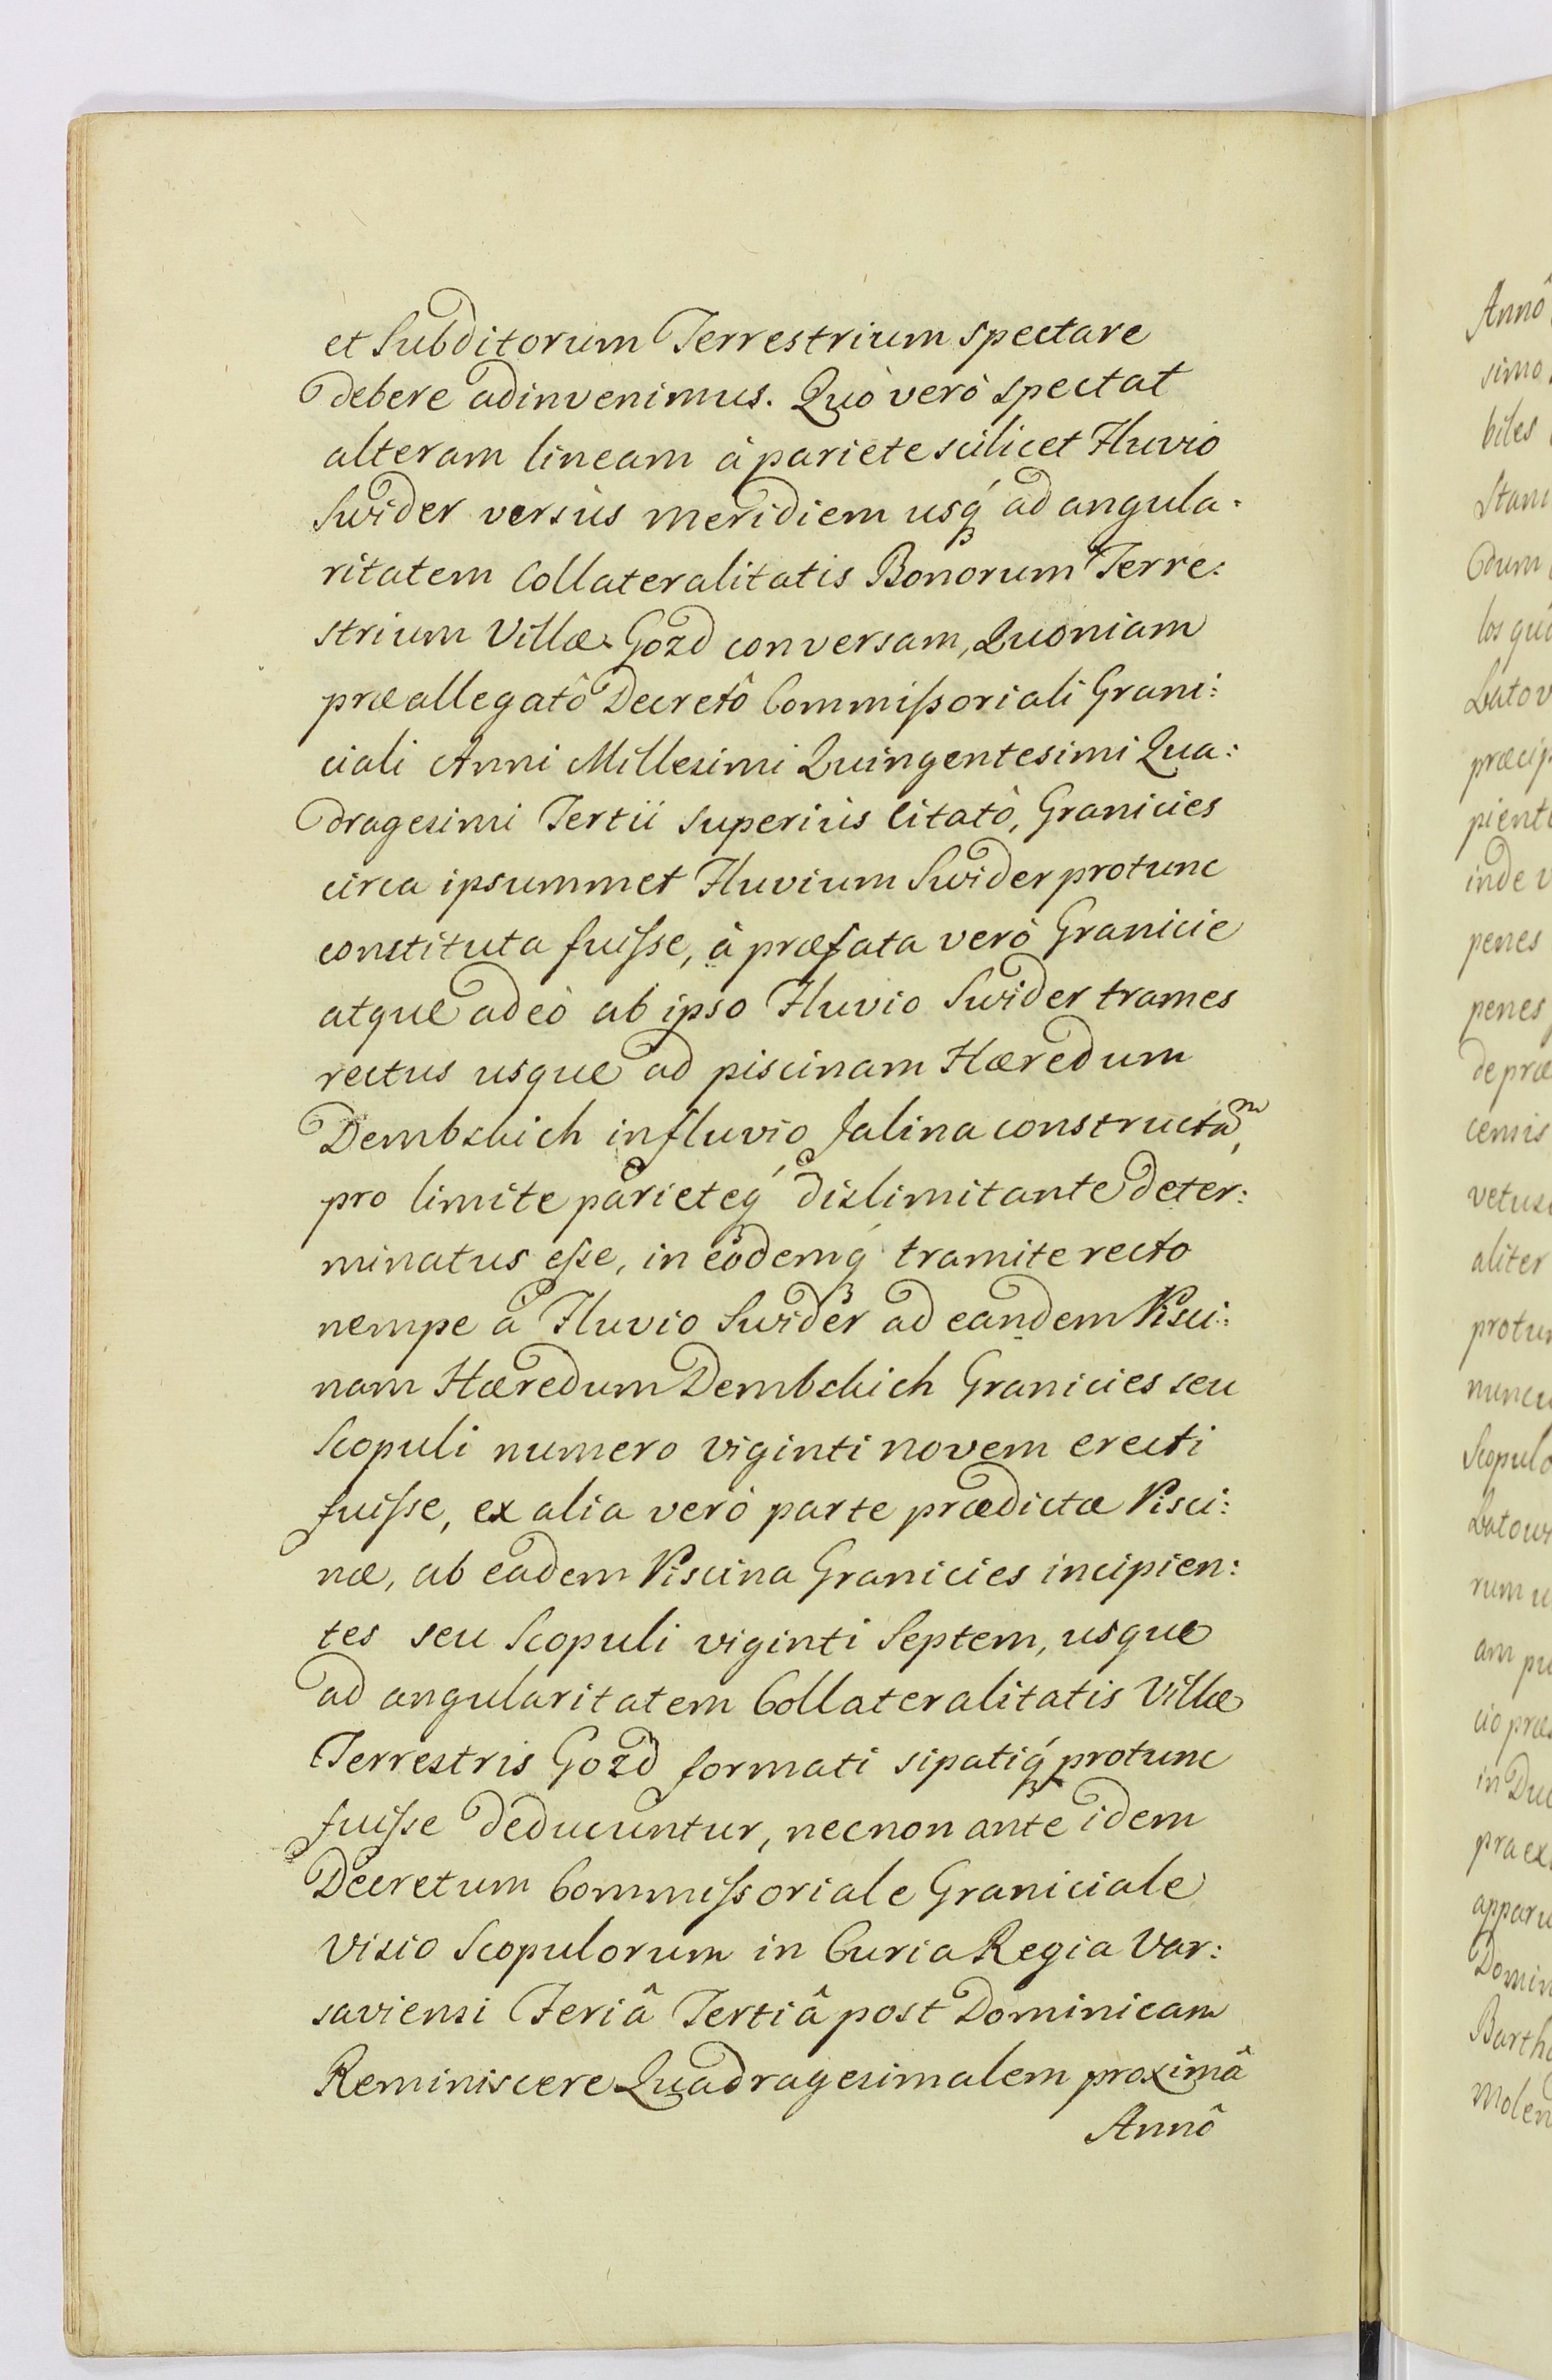 et Subditorum Terrestrium spectare
debere adinvenimus. Quò verò spectat
alteram lineam à pariete scilicet Fluvio
Swider versùs meridiem usq́ꝫ ad angula:
ritatem Collateralitatis Bonorum Terre:
strium Villæ Gozd conversam, Quoniam
præallegatô Decretô Commiſsoriali Grani:
ciali Anni Millesimi Quingentesimi Qua:
dragesimi Tertii superiùs citatô, Granicies
circa ipsummet Fluvium Swider protunc
constituta fuiſse, à præfata verò Granicie
atque adeò ab ipso Fluvio Swider trames
rectus usque ad piscinam Hæredum
Dembskich in fluvio Jalina constructam,
pro limite parieteq́ꝫ dislimitante deter:
minatus eſse, in eòdemq́ꝫ tramite recto
nempe à Fluvio Swider ad eandem Pisci:
nam Hæredum Dembskich Granicies seu
Scopuli numero viginti novem erecti
fuiſse, ex alia verò parte prædictæ Pisci:
næ, ab eadem Piscina Granicies incipien:
tes seu Scopuli viginti Septem, usque
ad angularitatem Collateralitatis Villæ
Terrestris Gozd formati sipatiq́ꝫ protunc
fuiſse deducuntur, necnon ante idem
Decretum Commiſsoriale Graniciale
Visio Scopulorum in Curia Regia Var:
saviensi Feriâ Tertiâ post Dominicam
Reminiscere Quadragesimalem proximâ
Annô
Annô
simo
biles
Stani
dum
los quô
Latov
præcip
pient
inde v
penes
penes
de præ
cenis
vetus
aliter
protun
nuncu
Scopulo
Latow
rum u
am pu
cio præ
in Duc
pra ex
apparu
Domin
Barth
Molen